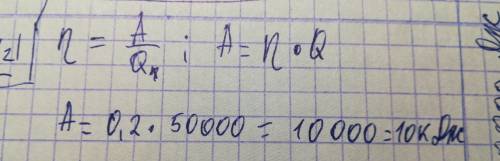 η = A / Qн ; A = η • Q
A = 0,2 • 50000 = 10000 = 10кДж